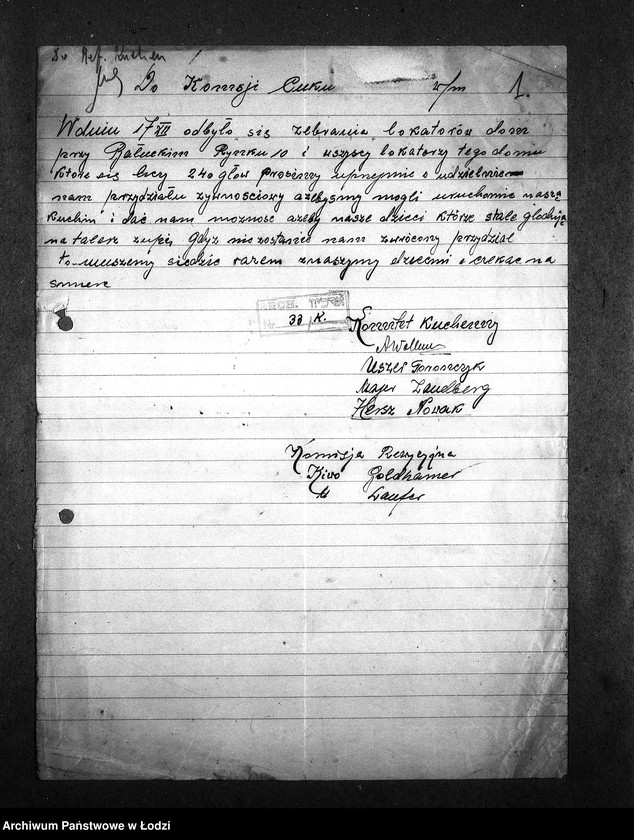 Do Komisji Cuku w/m 1.
W dniu 17 VII odbyło się zebrania lokatorów dom
przy Bałuckim Rynku 10 i wszyscy lokatorzy tego domu
które się liczy 240 głow prosiemy uprzejmie o udzielnie
nam przydziału żywnościowy ażebysmy mogli uruchomic naszą
kuchin i dać nam możność ażeby nasze dzieci które stale głodują
na talerz zupy, Gdyż nie zostanie nam zwrócony przydział
to muszemy siedzic razem z naszymy dziecmi i czekac na
smierc
ARCH.
Nr. 33/K.
Komitet Kuchenny
Uszer Toronczyk
Majer Landberg
Hersz Nowak
Komisja Rewizyjna
Kiwo Goldhamer
M Laufer
Archiwum Państwowe w Łodzi